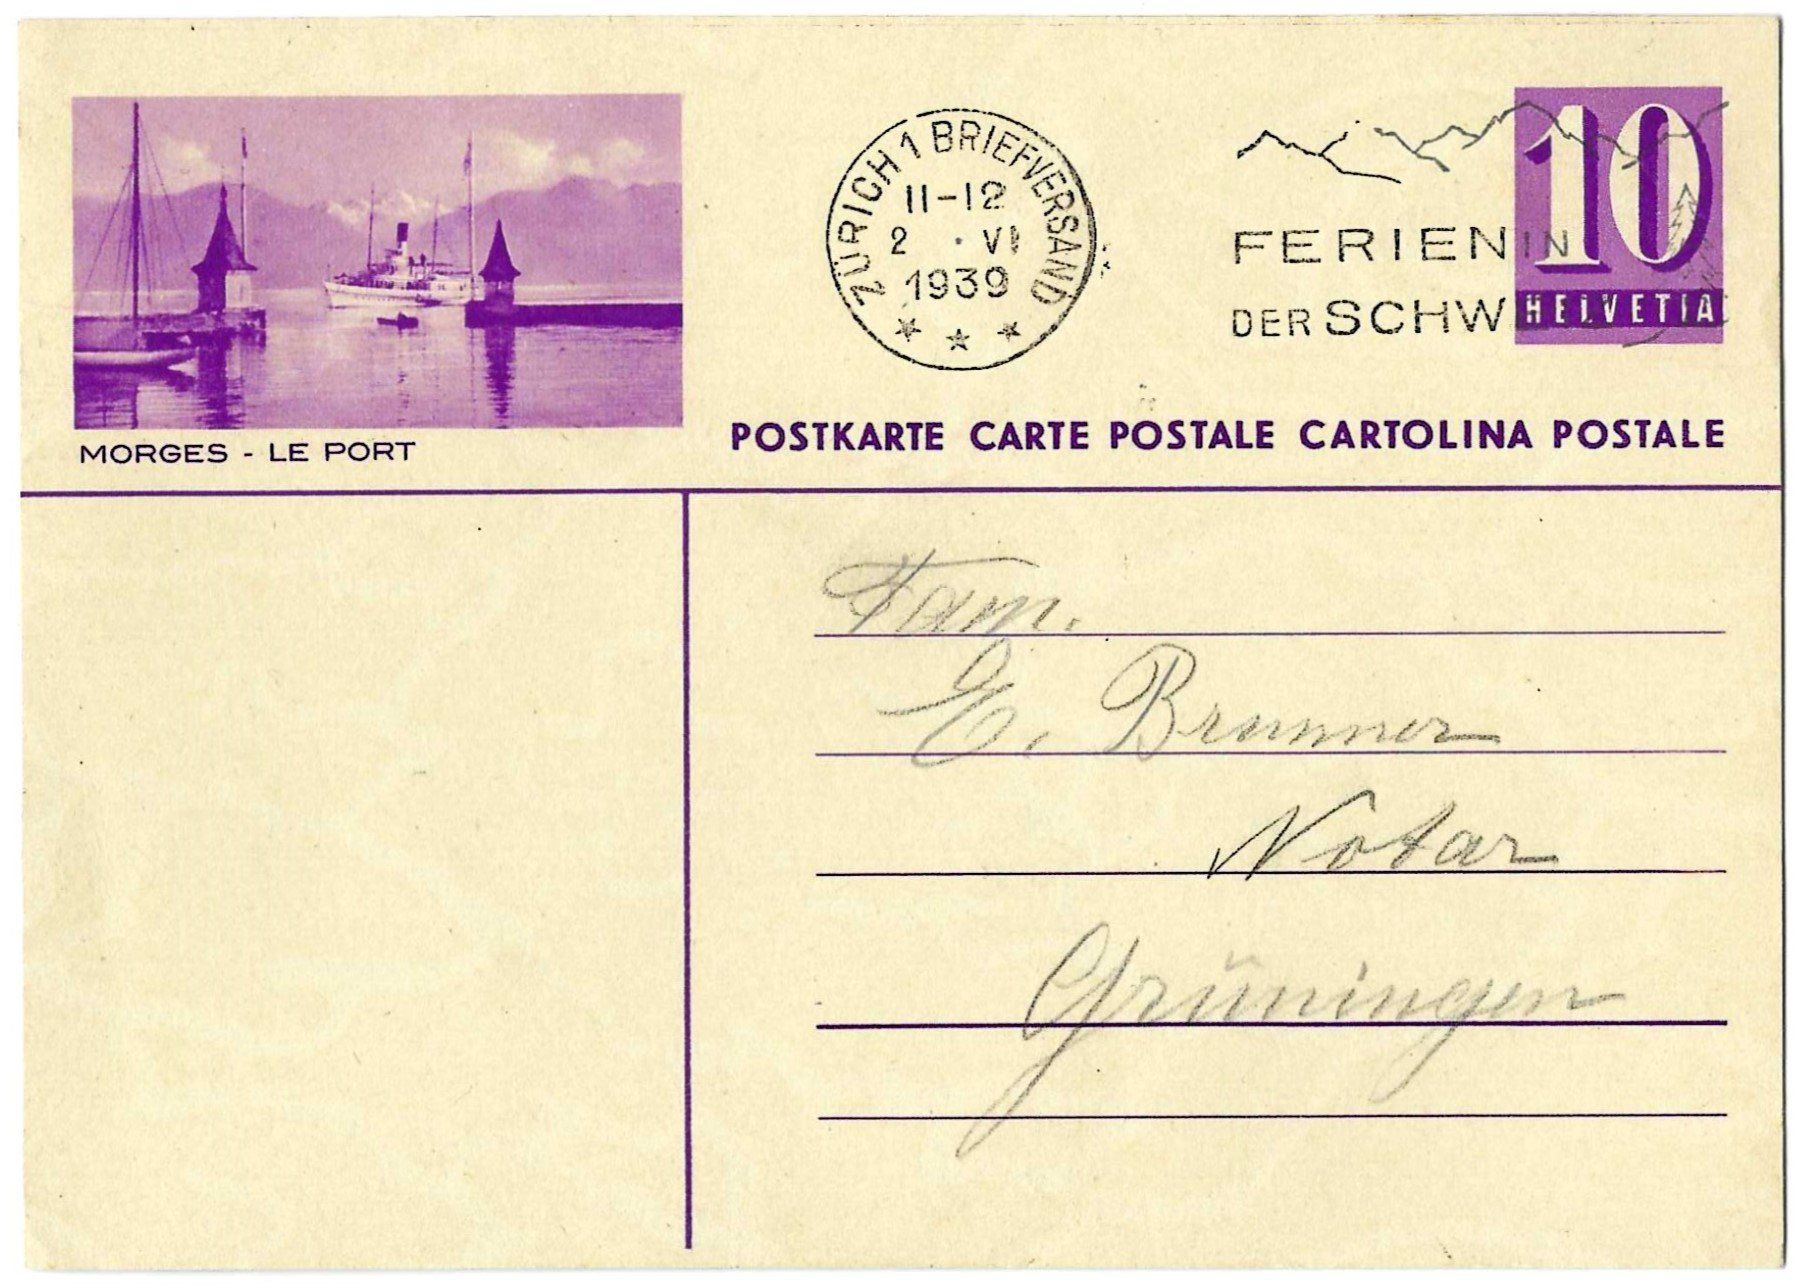 MORGES - LE PORT
ZÜRICH 1 BRIEFVERSAND
11-12
2 . VI
1939
FERIEN IN
DER SCHW
10
HELVETIA
POSTKARTE CARTE POSTALE CARTOLINA POSTALE
Fam.
E. Brunner
Notar
Grüningen